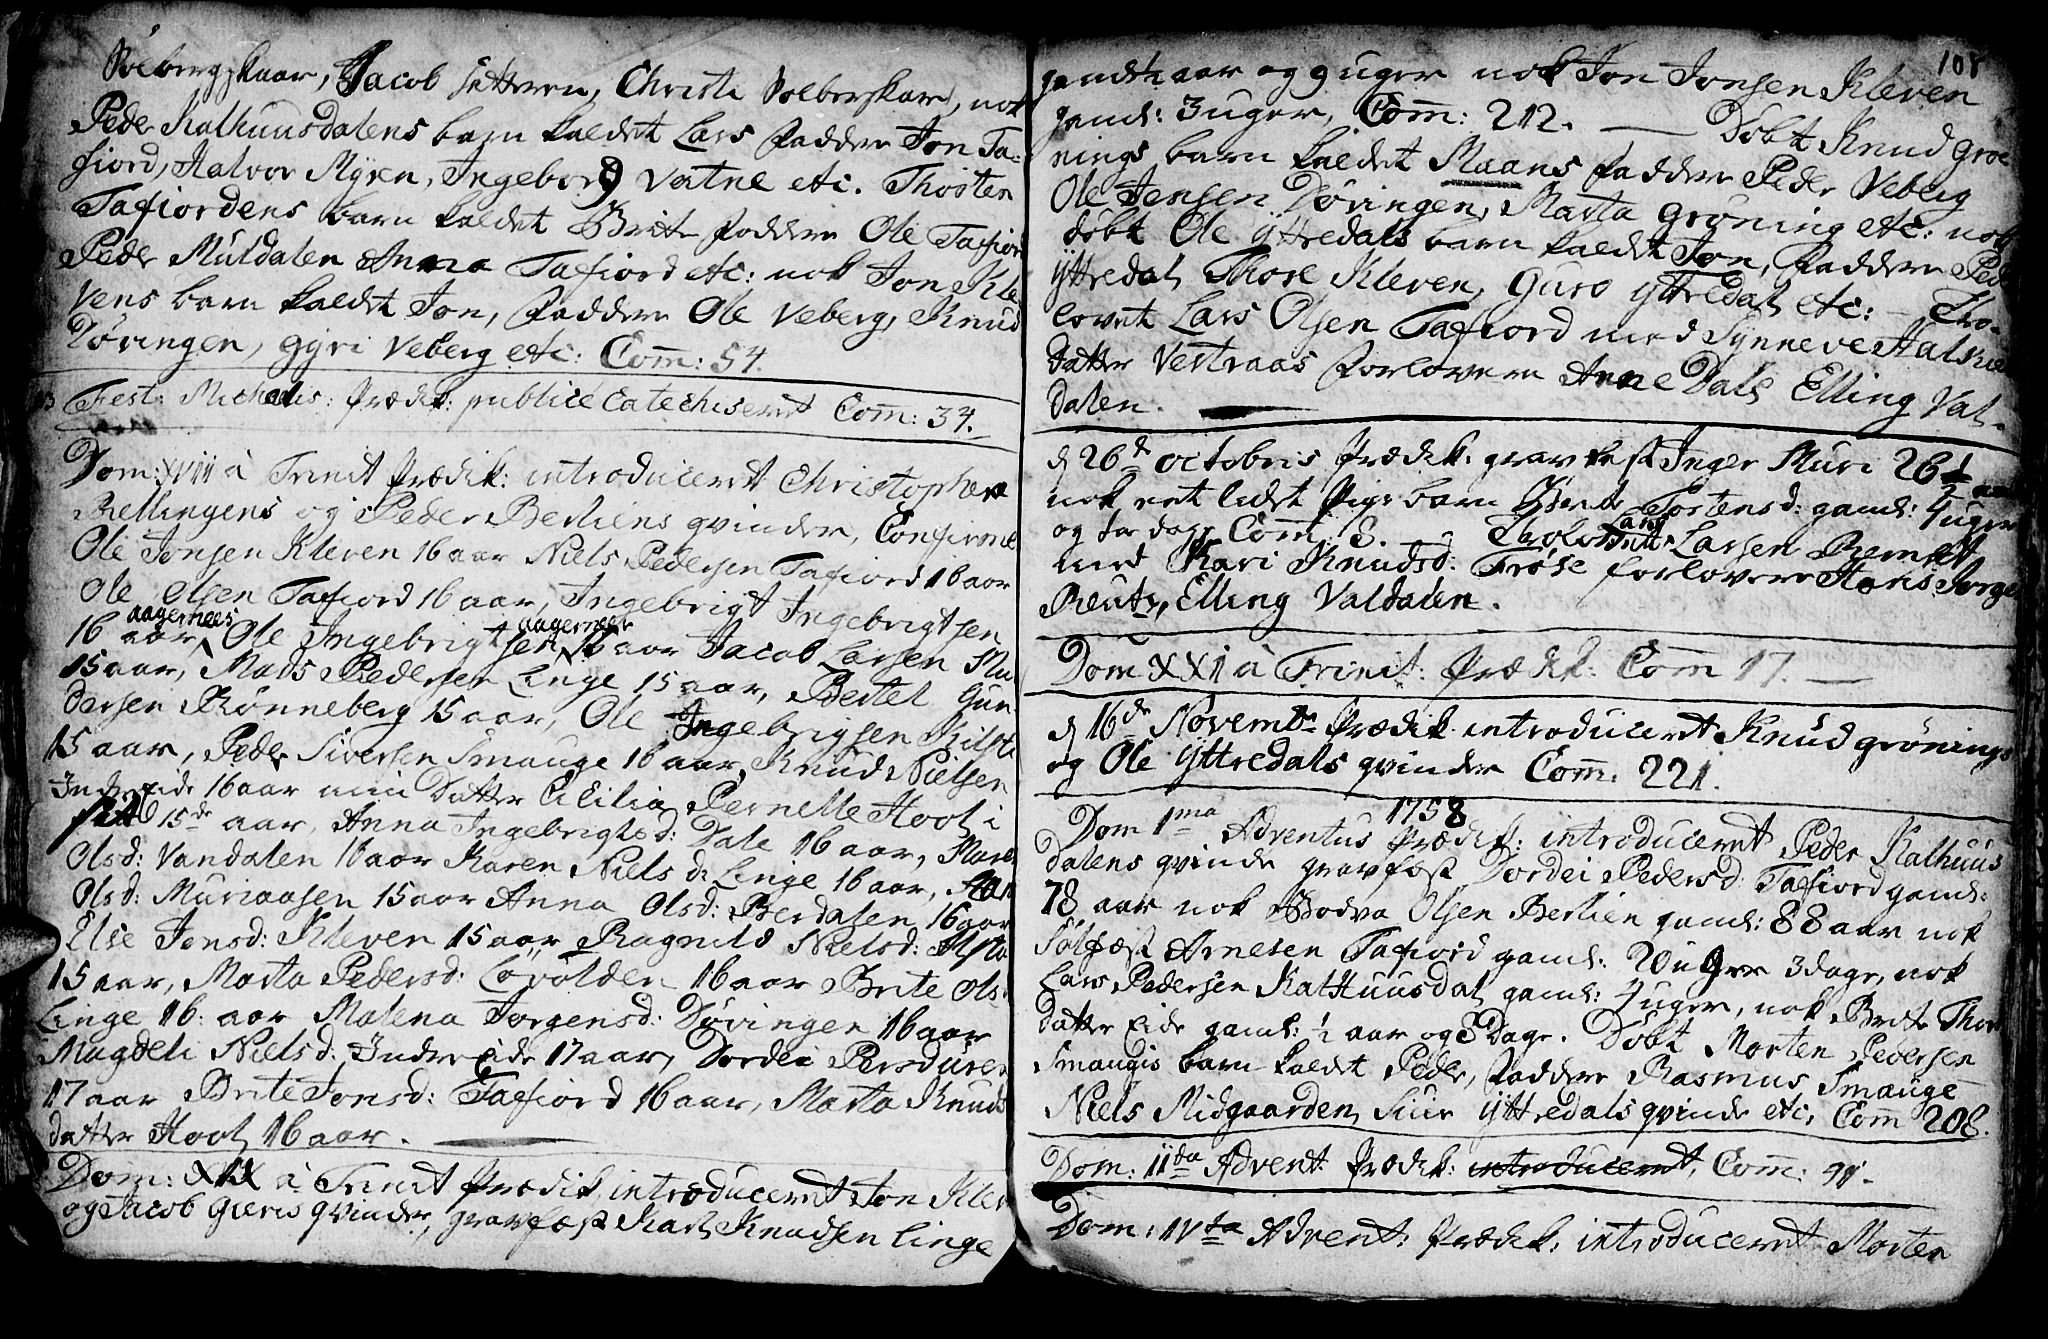 Jacob Christi nok
Peder Kalhuusdalens barn kaldet Lars faddere Jon Ta-
fiord, Halvor Myren, Ingeborg Vatne etc. Thosten
Tafiordens barn kaldet Brite faddere Ole Tafiord
Peder Muldalen Anna Tafiord etc: nok Jon Kle
vens barn kaldet Jon, faddere Ole Veberg, Knud
Døvingen, gyri Veberg etc: Com̄: 54.
Fest: Michaelis: prædik: publice Catechiseret Com̄: 34.
Dom: XVII à Trinit prædik: introduceret Christopher
Rellingens og Peder Berliens qvinder, Confirme
Ole Jonsen Kleven 16 aar Niels Pedersen Tafiord 16 aar
Ole Olsen Tafiord 16 aar, Ingebrigt Ingebrigtsen
aagernees aagernees
16 aar, Ole Ingebrigtsen 16 aar Jacob Larsen Mu
15 aar, Mads Pedersen Linge 15 aar, Bertel Gun
dersen Rønneberg 15 aar, Ole Ingebrigsen Kilsti
15 aar, Peder Siversen Smauge 16 aar, Knud Nielsen
IndreEide 16 aar min Datter Cicilia Pernelle Hool i
sitt 15de aar, Anna Ingebrigtsd: Dale 16 aar, Maren
Olsd: Vandalen 16 aar Karen Nielsd: Linge 16 aar,
Olsd: Muriaasen 15 aar Anna Olsd: Berdalen 16 aar
Else Jonsd: Kleven 15 aar Ragnild Nielsd:
15 aar, Marta Pedersd: Løvolden 16 aar Brite Ols
Linge 16: aar Malena Jørgensd: Døvingen 16 aar
Magdeli Nielsd: Indreeide 17 aar, Dordei
17 aar Brite Jonsd: Tafiord 16 aar, Marta Knuds
datter Hool 16 aar.
Dom: XIX à Trinit prædik introduceret Jon Klev
og Jacob giers qvinder, gravfæst Karl Knudsen Linge
108
gaml ½ aar og 9 uger nok Jon Jonsen Kleven
gaml: 3 uger, Com̄: 212. Døbt Knud grøe
nings barn kaldet Maans faddere Peder Veberg
Ole Jensen Døvingen, Marta grøning etc: nok
døbt Ole yttredals barn kaldet Jon, faddere Ped
yttredal Thore Kleven, guro yttredal etc: – Tro-
lovet Lars Olsen Tafiord med Synneve Halsteen
datter Vestraas forlovere Anne Dals Elling Val-
dalen.
d 26de octobris prædik: gravfæst Inger Muri 26½ aar
nok eet lidet pige barn Tostensd: gaml: 4 uger
og dage Com̄: 8. Trolovet Larsen Berntet
med Kari Knudsd: Frøse forlovere Hans Jørge
Reutz, Elling Valdalen.
Dom XXI à Trinit: prædik: Com̄ 17.
d 16de Novembr prædik introduceret Knud grønings
og Ole yttredals qvinder Com̄: 221.
1758
Dom 1ma Adventus prædik: introduceret Peder Kalhuus
dalens qvinde gravfæst Dordei Pedersd: Tafiord gaml:
78 aar nok Bodva Olsen Berlien gaml: 88 aar nok
Sølfæst Arnesen Tafiord gaml: 20 uger 3 dage, nok
Lars Pedersen KalHuusdal gaml: 4 uger, nok Brite Thor
datter Eide gaml: ½ aar og 8 Dage. Døbt Morten Pedersen
Smaugis barn kaldet Peder, faddere Rasmus Smauge
Niels Midgaarden, Siur yttredals qvinde etc, Com̄ 208.
Dom: IIda Advent: prædik: introduceret, Com̄: 91.
Dom: IVta Advent: prædik: introduceret Morten